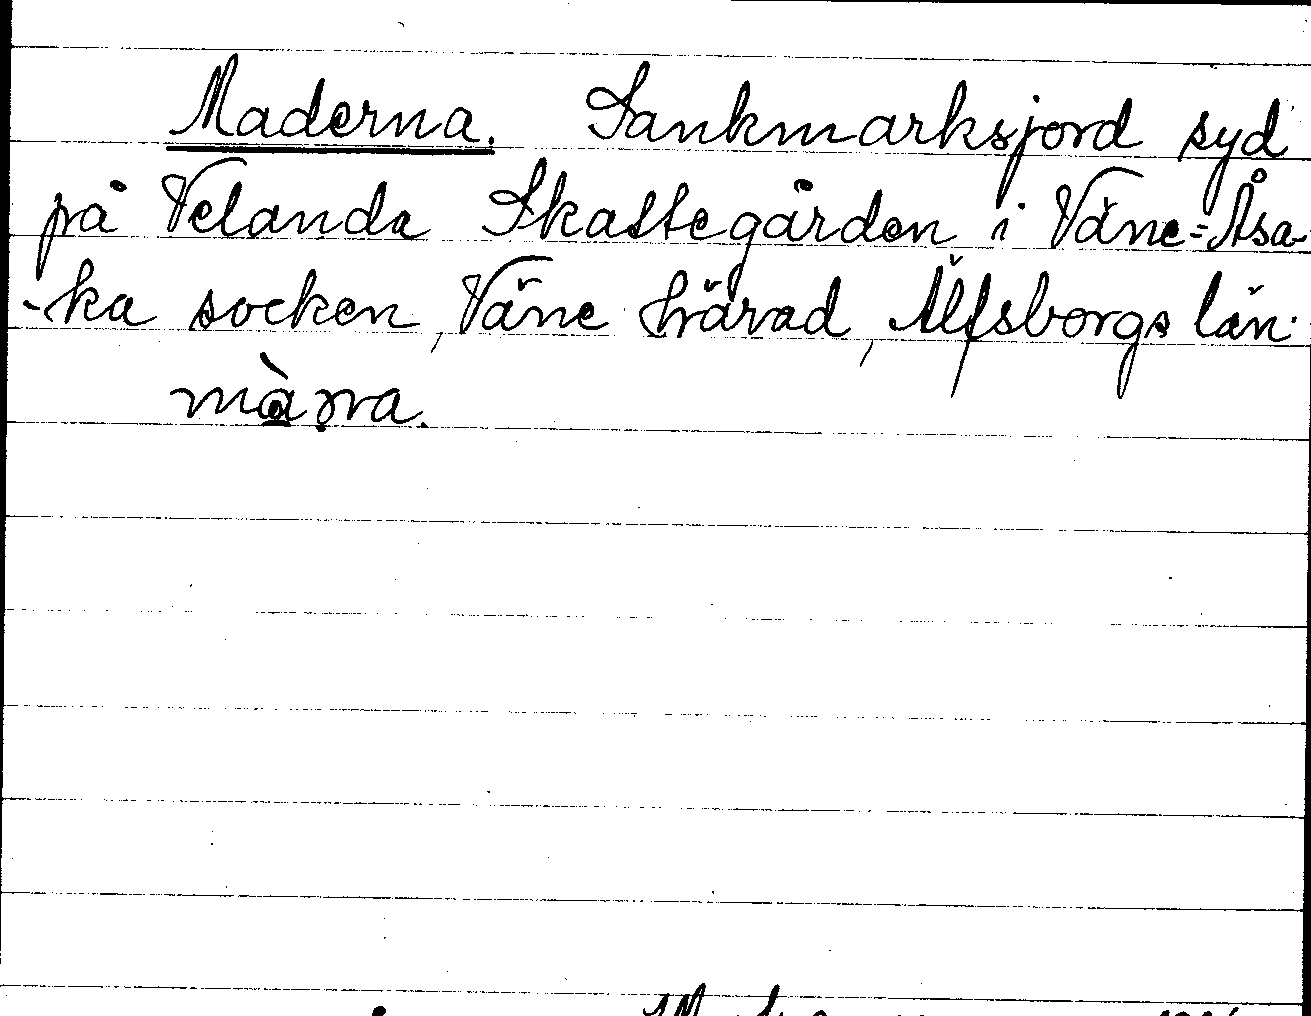 Maderna. Sankmarksjord syd
på Velanda Skattegården i Väne=Åsa-
-ka socken, Väne härad, Älfsborgs län.